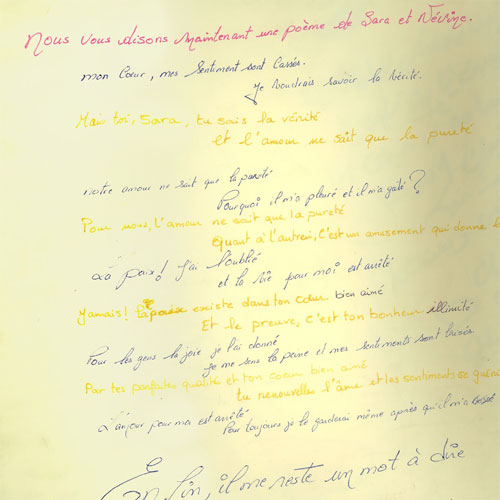 Nous vous disons maintenant une poème de Sara et Névine.
mon Cœur, mes Sentiment sont Cassés.
Je voudrais savoir la vérité.
Mais toi, Sara, tu sais la vérité
et l'amour ne sait que la pureté
notre amour ne sait que la pureté
Pourquoi il m'a pleuré et il m'a gaté ?
Pour nous, l'amour ne sait que la pureté
quant à l'autrei, C'est un amusement qui donne
La paix! j'ai l'oublié
et la vie pour moi est arrêté
Jamais! la paix existe dans ton cœur bien aimé
Et le preuve, c'est ton bonheur illimité
Pour les gens la joie je l'ai donné
je me sens la peine et mes sentiments sont laissés
Par tes parfaites qualité et ton coeur bien aimé
tu renouvelles l'âme et les sentiments
L'amour pour moi est arrêté
Pour toujours je le garderai même après qu'il m'a
En fin, il me reste un mot à dire